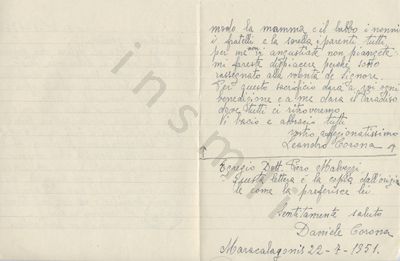 modo la mamma e il babbo i nonni
i fratelli e la sorella i parenti tutti
per me non vi angustiate non piangete
mi fareste dispiacere perché sotto
rassegnato alla volontà de Signore.
Per questo sacrificio darà a voi ogni
benedizione e a me darà il Paradiso
dove tutti ci ritroveremo.
Vi bacio e abbracio tutti
vostro affezionatissimo
Leandro Corona
Egregio Dott. Piero Malvezzi
Questa lettera è la copia dall'origina
le come la preferisce lei
Sentitamente saluto
Daniele Corona
Maracalagonis 22-7-1951.
insmli